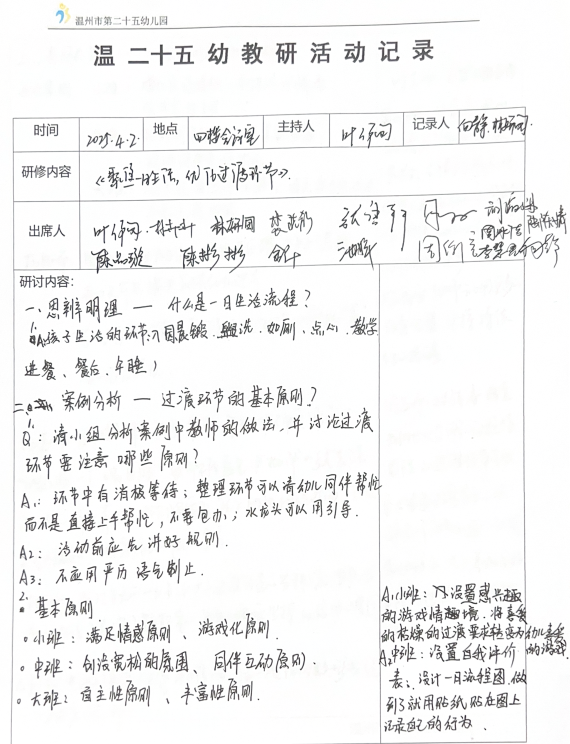 温州市第二十五幼儿园
温 二十五 幼 教 研 活 动 记 录
时间 2025.4.2. 地点 四楼会议室 主持人 记录人
研修内容 《聚焦一日生活,优化过渡环节》.
出席人
研讨内容:
一、思辨明理 — 什么是一日生活流程?
孩子生活的环节 盥洗、如厕、点心、教学
进餐、餐后、午睡)
案例分析 — 过渡环节的基本原则?
Q:请小组分析案例中教师的做法,并讨论过渡
环节要注意哪些原则?
A1:环节中有消极等待;整理环节可以请幼儿同伴帮忙
而不是直接上手帮忙,不要包办;水龙头可以用引导.
A2:活动前应先讲好规则.
A3:不应用严厉语气制止.
2.
• 基本原则
• 小班:满足情感原则、游戏化原则.
• 中班:创设宽松的氛围、同伴互动原则.
• 大班:自主性原则、丰富性原则.
A1小班:设置感兴趣
的游戏情趣境,将喜爱
的枯燥的过渡要求转变为幼儿喜爱
的游戏
A2中班:设置自我评价
表;设计一日流程图,做
到了就用贴纸贴在图上
记录自己的行为.